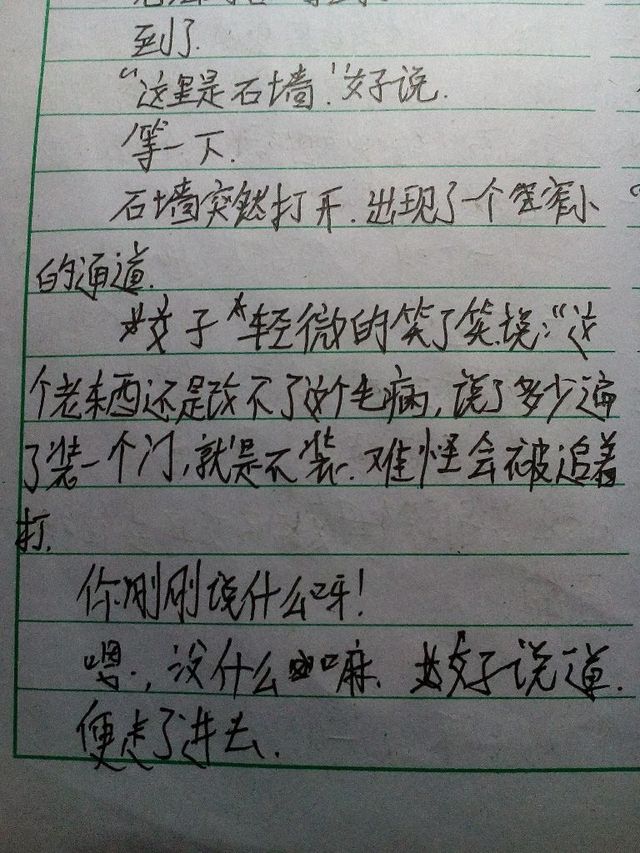 到了.
"这里是石墙."好子说.
等一下.
石墙突然打开.出现了一个窄小
的通道.
子轻微的笑了笑说:"这
个老东西还是改不了这个毛病,说了多少遍
了装一个门,就是不装.难怪会被追着
打.
你刚刚说什么呀!
嗯.,没什么嘛.子说道.
便走了进去.